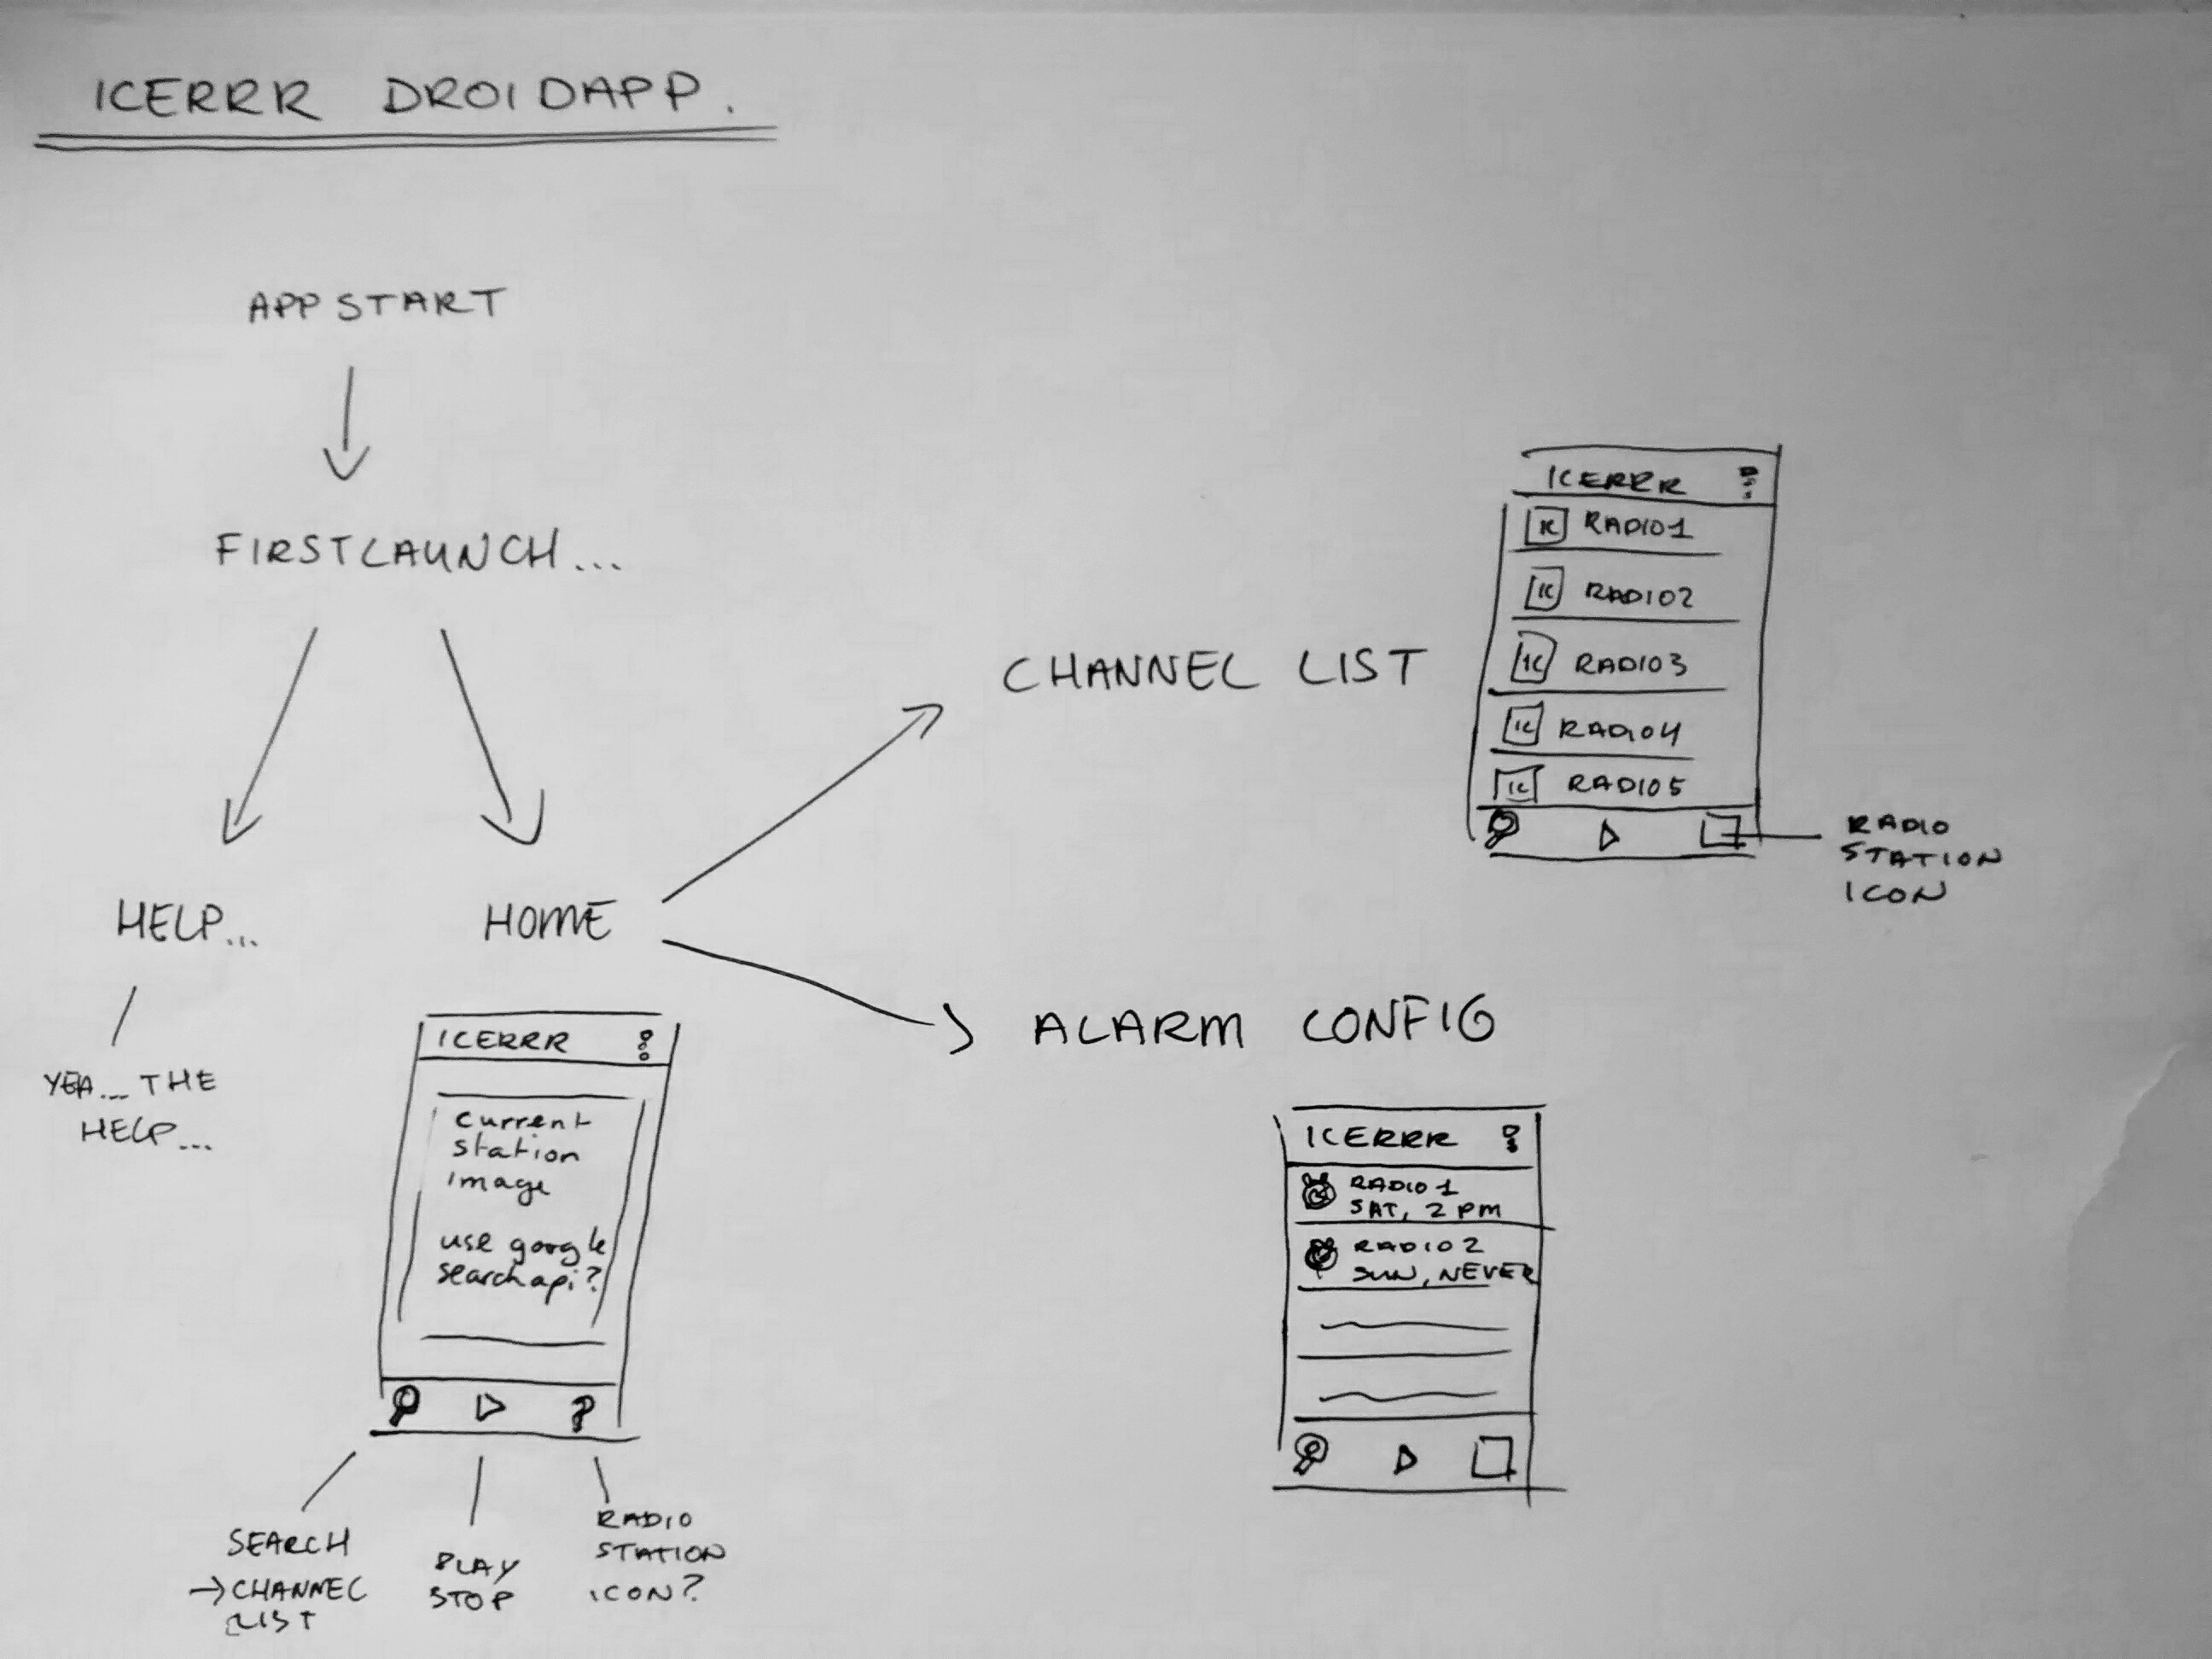 ICERRR DROIDAPP.
APP START
FIRSTLAUNCH...
HELP...
HOME
YEA... THE
HELP...
ICERRR
current
station
image
use google
search api?
?
SEARCH
→ CHANNEL
LIST
PLAY
STOP
RADIO
STATION
ICON?
CHANNEL LIST
ICERRR
IC RADIO1
IC RADIO2
IC RADIO3
IC RADIO4
IC RADIO5
RADIO
STATION
ICON
ALARM CONFIG
ICERRR
RADIO 1
SAT, 2 PM
RADIO 2
SUN, NEVER